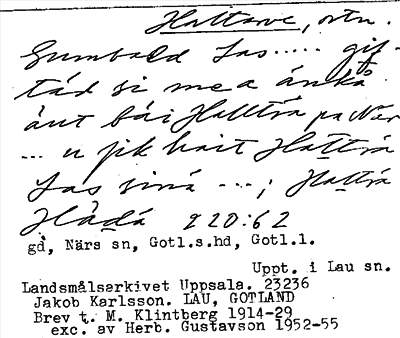 Hattarve, ortn.
Gumbald Las..... gif-
tád si me a änkå
änt bái Hallträ pa När
... u jik hait Hattra
Las sinä ...; Hattra
Hådå 2 20:62
gd, Närs sn, Gotl.s.hd, Gotl.l.
Uppt. i Lau sn.
Landsmålsarkivet Uppsala. 23236
Jakob Karlsson. LAU, GOTLAND
Brev t. M. Klintberg 1914-29
exc. av Herb. Gustavson 1952-55